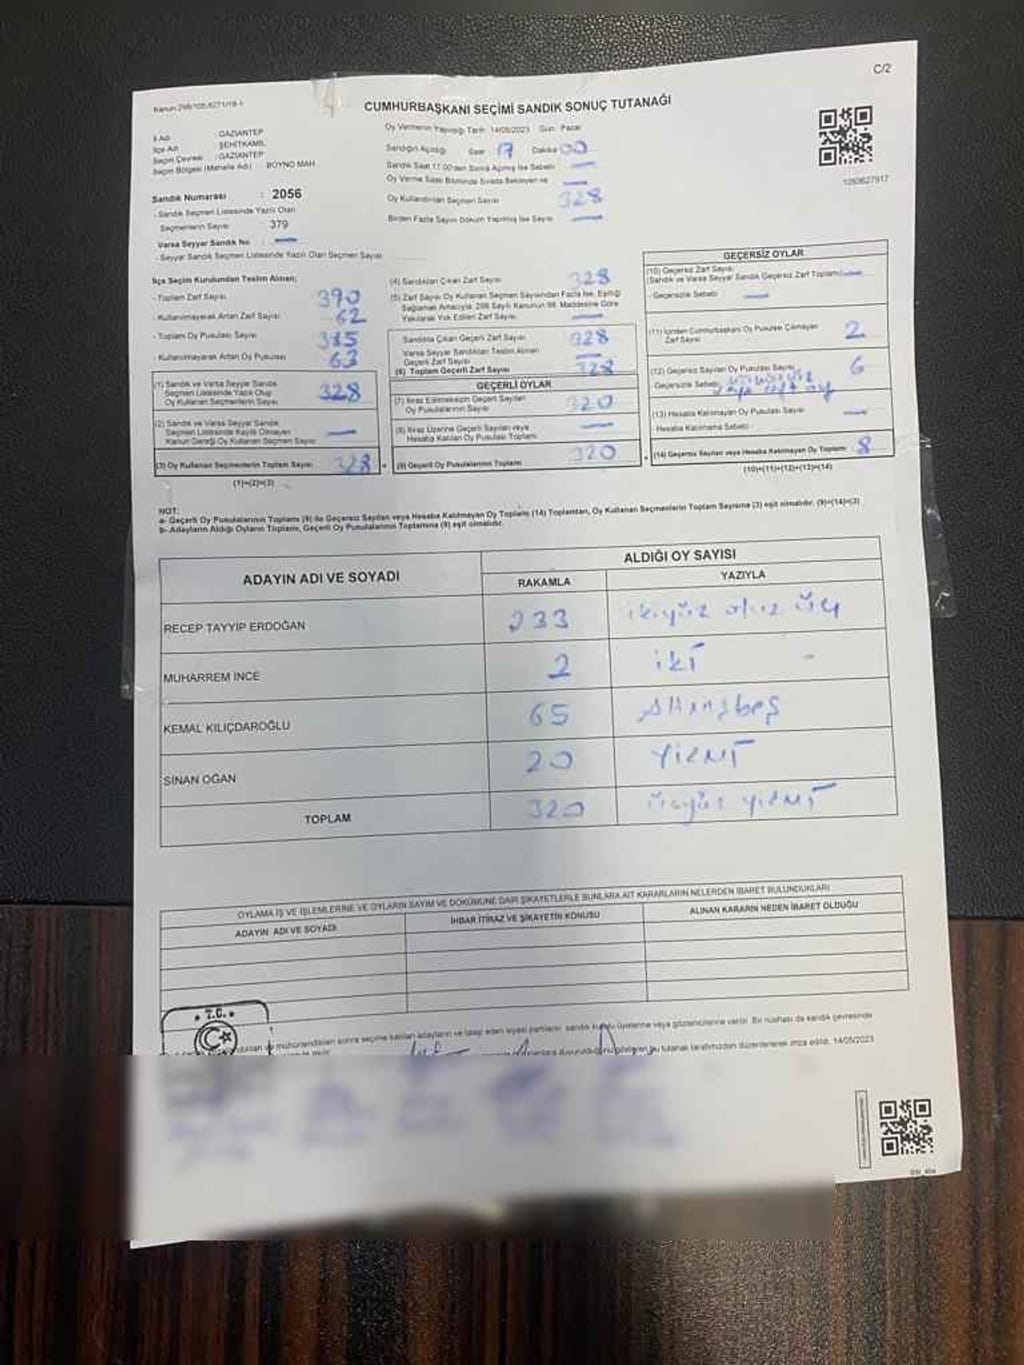 C/2
Kanun 298/105.6271/19-1
CUMHURBAŞKANI SEÇİMİ SANDIK SONUÇ TUTANAĞI
İl Adı : GAZİANTEP
İlçe Adı : ŞEHİTKAMİL
Seçim Çevresi : GAZİANTEP
Seçim Bölgesi (Mahalle Adı) : BOYNO MAH.
Sandık Numarası : 2056
- Sandık Seçmen Listesinde Yazılı Olan
Seçmenlerin Sayısı : 379
Varsa Seyyar Sandık No : —
- Seyyar Sandık Seçmen Listesinde Yazılı Olan Seçmen Sayısı
Oy Vermenin Yapıldığı Tarih: 14/05/2023 Gün: Pazar
Sandığın Açıldığı Saat 17 Dakika 00
Sandık Saat 17.00'den Sonra Açılmış İse Sebebi —
Oy Verme Saati Bitiminde Sırada Bekleyen ve —
Oy Kullandırılan Seçmen Sayısı 328
Birden Fazla Sayım Döküm Yapılmış İse Sayısı —
1050627917
İlçe Seçim Kurulundan Teslim Alınan;
- Toplam Zarf Sayısı 390
- Kullanılmayarak Artan Zarf Sayısı 62
- Toplam Oy Pusulası Sayısı 385
- Kullanılmayarak Artan Oy Pusulası 63
(1) Sandık ve Varsa Seyyar Sandık
Seçmen Listesinde Yazılı Olup
Oy Kullanan Seçmenlerin Sayısı 328
(2) Sandık ve Varsa Seyyar Sandık
Seçmen Listesinde Kayıtlı Olmayan
Kanun Gereği Oy Kullanan Seçmen Sayısı —
(3) Oy Kullanan Seçmenlerin Toplam Sayısı 328
(1)+(2)=(3)
(4) Sandıktan Çıkan Zarf Sayısı 328
(5) Zarf Sayısı Oy Kullanan Seçmen Sayısından Fazla İse, Eşitliği
Sağlamak Amacıyla; 298 Sayılı Kanunun 98. Maddesine Göre
Yakılarak Yok Edilen Zarf Sayısı —
Sandıkta Çıkan Geçerli Zarf Sayısı 328
Varsa Seyyar Sandıktan Teslim Alınan
Geçerli Zarf Sayısı —
(6) Toplam Geçerli Zarf Sayısı 328
GEÇERLİ OYLAR
(7) İtiraz Edilmeksizin Geçerli Sayılan
Oy Pusulalarının Sayısı 320
(8) İtiraz Üzerine Geçerli Sayılan veya
Hesaba Katılan Oy Pusulası Toplamı —
(9) Geçerli Oy Pusulalarının Toplamı 320
GEÇERSİZ OYLAR
(10) Geçersiz Zarf Sayısı
(Sandık ve Varsa Seyyar Sandık Geçersiz Zarf Toplamı) —
- Geçersizlik Sebebi : —
(11) İçinden Cumhurbaşkanı Oy Pusulası Çıkmayan
Zarf Sayısı 2
(12) Geçersiz Sayılan Oy Pusulası Sayısı 6
Geçersizlik Sebebi
(13) Hesaba Katılmayan Oy Pusulası Sayısı —
Hesaba Katılmama Sebebi :
(14) Geçersiz Sayılan veya Hesaba Katılmayan Oy Toplamı : 8
(10)+(11)+(12)+(13)=(14)
NOT:
a- Geçerli Oy Pusulalarının Toplamı (9) ile Geçersiz Sayılan veya Hesaba Katılmayan Oy Toplamı (14) Toplamları, Oy Kullanan Seçmenlerin Toplam Sayısına (3) eşit olmalıdır. (9)+(14)=(3)
b- Adayların Aldığı Oyların Toplamı, Geçerli Oy Pusulalarının Toplamına (9) eşit olmalıdır.
ADAYIN ADI VE SOYADI ALDIĞI OY SAYISI
RAKAMLA YAZIYLA
RECEP TAYYİP ERDOĞAN 233 ikiyüz otuz üç
MUHARREM İNCE 2 iki -
KEMAL KILIÇDAROĞLU 65 Altmışbeş
SİNAN OĞAN 20 Yirmi
TOPLAM 320 üçyüz yirmi
OYLAMA İŞ VE İŞLEMLERİNE VE OYLARIN SAYIM VE DÖKÜMÜNE DAİR ŞİKAYETLERLE BUNLARA AİT KARARLARIN NELERDEN İBARET BULUNDUKLARI
ADAYIN ADI VE SOYADI İHBAR İTİRAZ VE ŞİKAYETİN KONUSU ALINAN KARARIN NEDEN İBARET OLDUĞU
* T.C. *
mühürlendikten sonra seçime katılan adayların ve talep eden siyasi partilerin sandık kurulu üyelerine veya gözlemcilerine verilir. Bir nüshası da sandık çevresinde
tutanak tarafımızdan düzenlenerek imza edildi. 14/05/2023